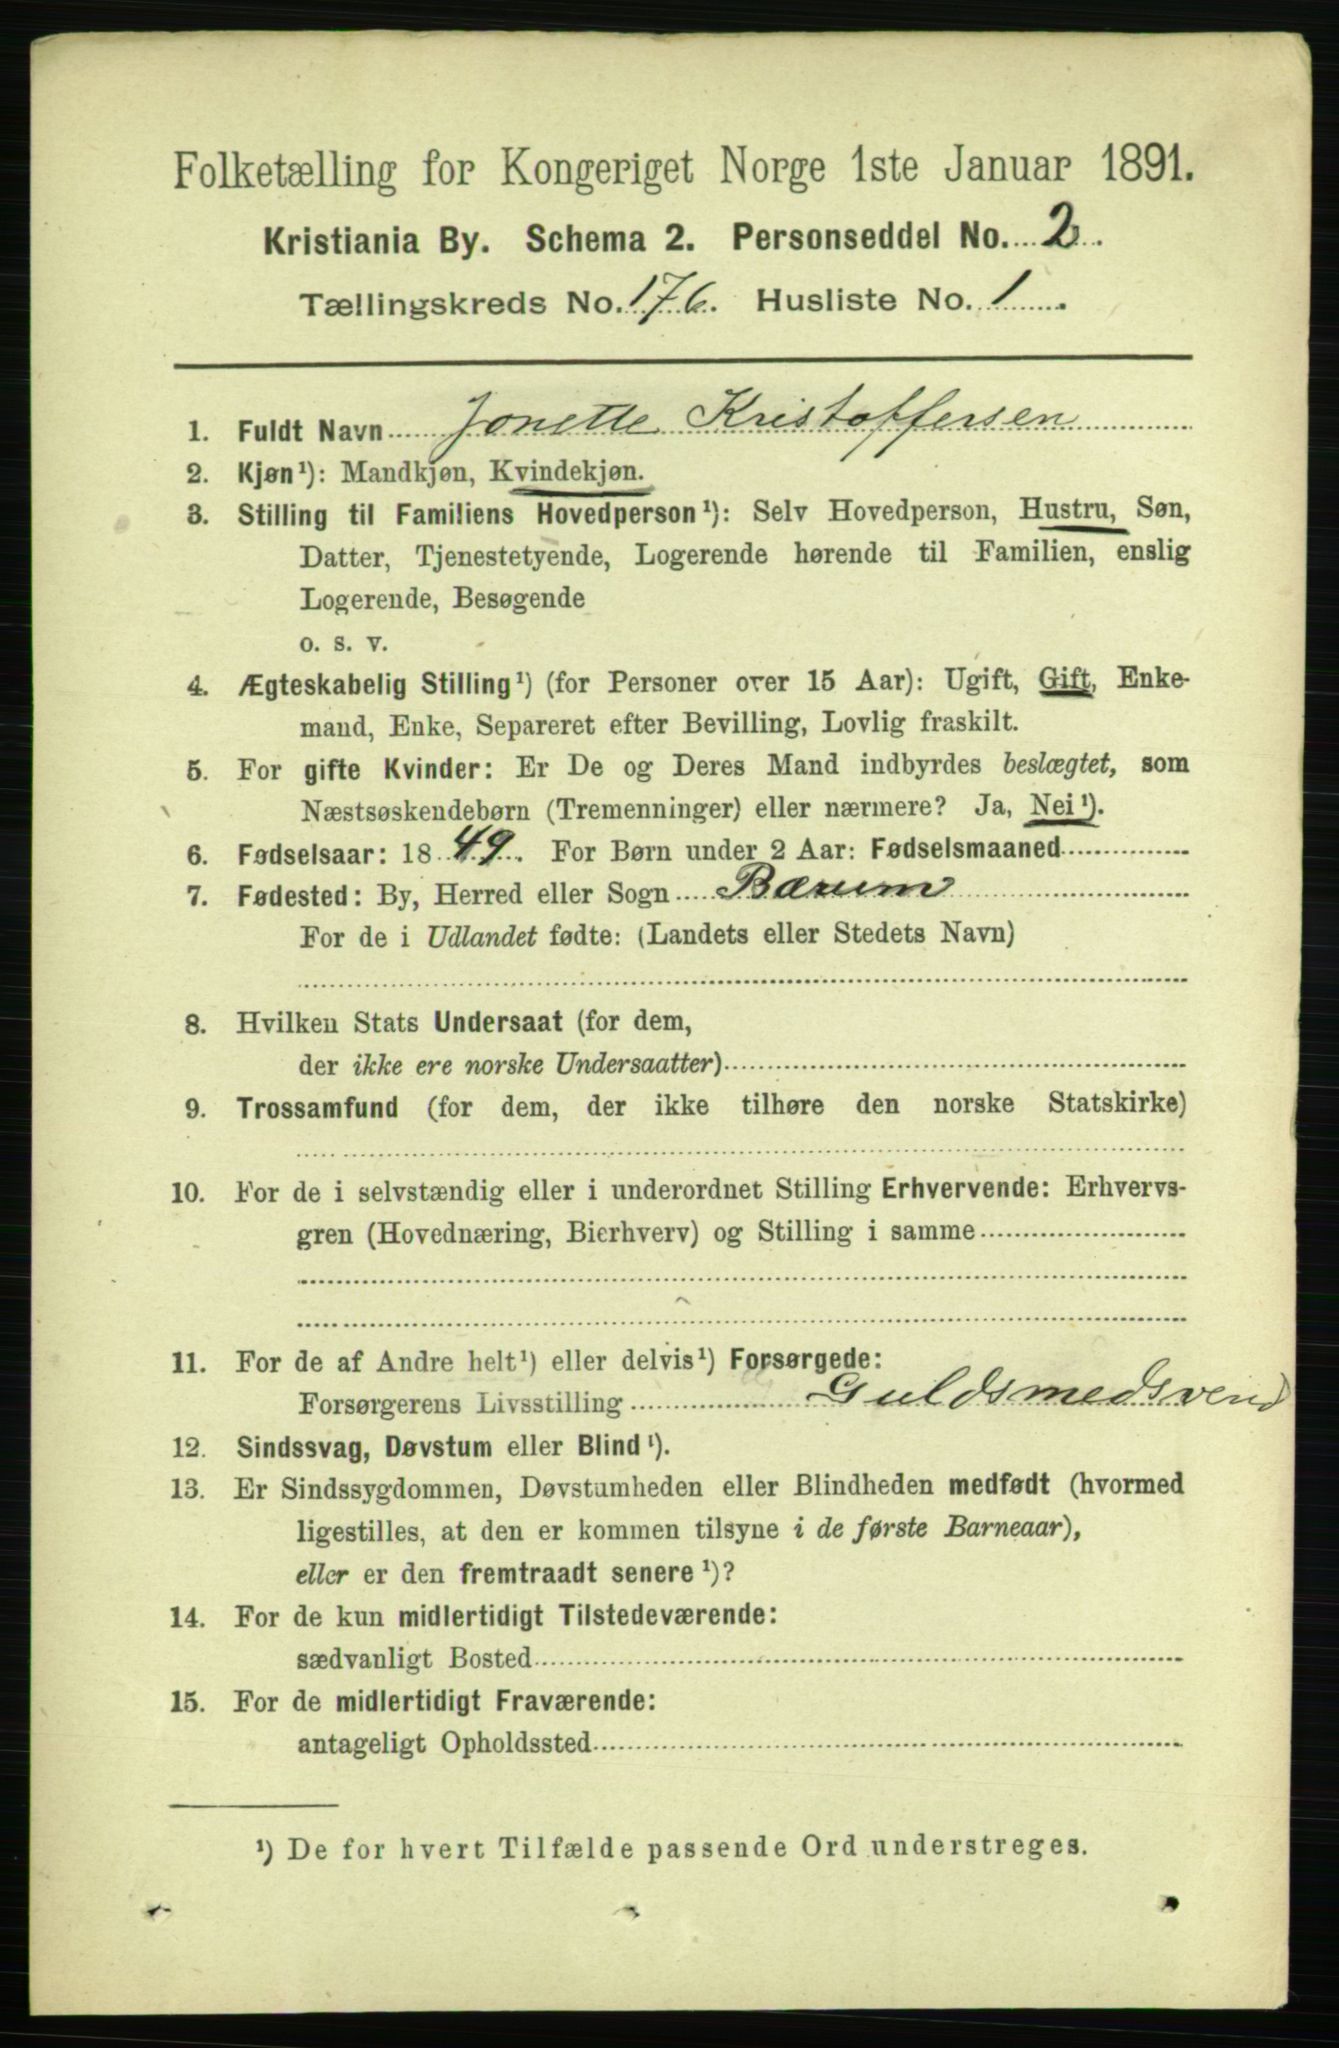 Folketælling for Kongeriget Norge 1ste Januar 1891.
Kristiania By. Schema 2. Personseddel No. 2.
Tællingskreds No. 176. Husliste No. 1.
1. Fuldt Navn Jonette Kristoffersen
2. Kjøn¹): Mandkjøn, Kvindekjøn.
3. Stilling til Familiens Hovedperson¹): Selv Hovedperson, Hustru, Søn,
Datter, Tjenestetyende, Logerende hørende til Familien, enslig
Logerende, Besøgende
o. s. v.
4. Ægteskabelig Stilling¹) (for Personer over 15 Aar): Ugift, Gift, Enke-
mand, Enke, Separeret efter Bevilling, Lovlig fraskilt.
5. For gifte Kvinder: Er De og Deres Mand indbyrdes beslægtet, som
Næstsøskendebørn (Tremenninger) eller nærmere? Ja, Nei¹).
6. Fødselsaar: 1849. For Børn under 2 Aar: Fødselsmaaned
7. Fødested: By, Herred eller Sogn Bærum
For de i Udlandet fødte: (Landets eller Stedets Navn)
8. Hvilken Stats Undersaat (for dem,
der ikke ere norske Undersaatter)
9. Trossamfund (for dem, der ikke tilhøre den norske Statskirke)
10. For de i selvstændig eller i underordnet Stilling Erhvervende: Erhvervs-
gren (Hovednæring, Bierhverv) og Stilling i samme
11. For de af Andre helt¹) eller delvis¹) Forsørgede:
Forsørgerens Livsstilling Guldsmedsvend
12. Sindssvag, Døvstum eller Blind¹).
13. Er Sindssygdommen, Døvstumheden eller Blindheden medfødt (hvormed
ligestilles, at den er kommen tilsyne i de første Barneaar),
eller er den fremtraadt senere¹)?
14. For de kun midlertidigt Tilstedeværende:
sædvanligt Bosted
15. For de midlertidigt Fraværende:
antageligt Opholdssted
¹) De for hvert Tilfælde passende Ord understreges.